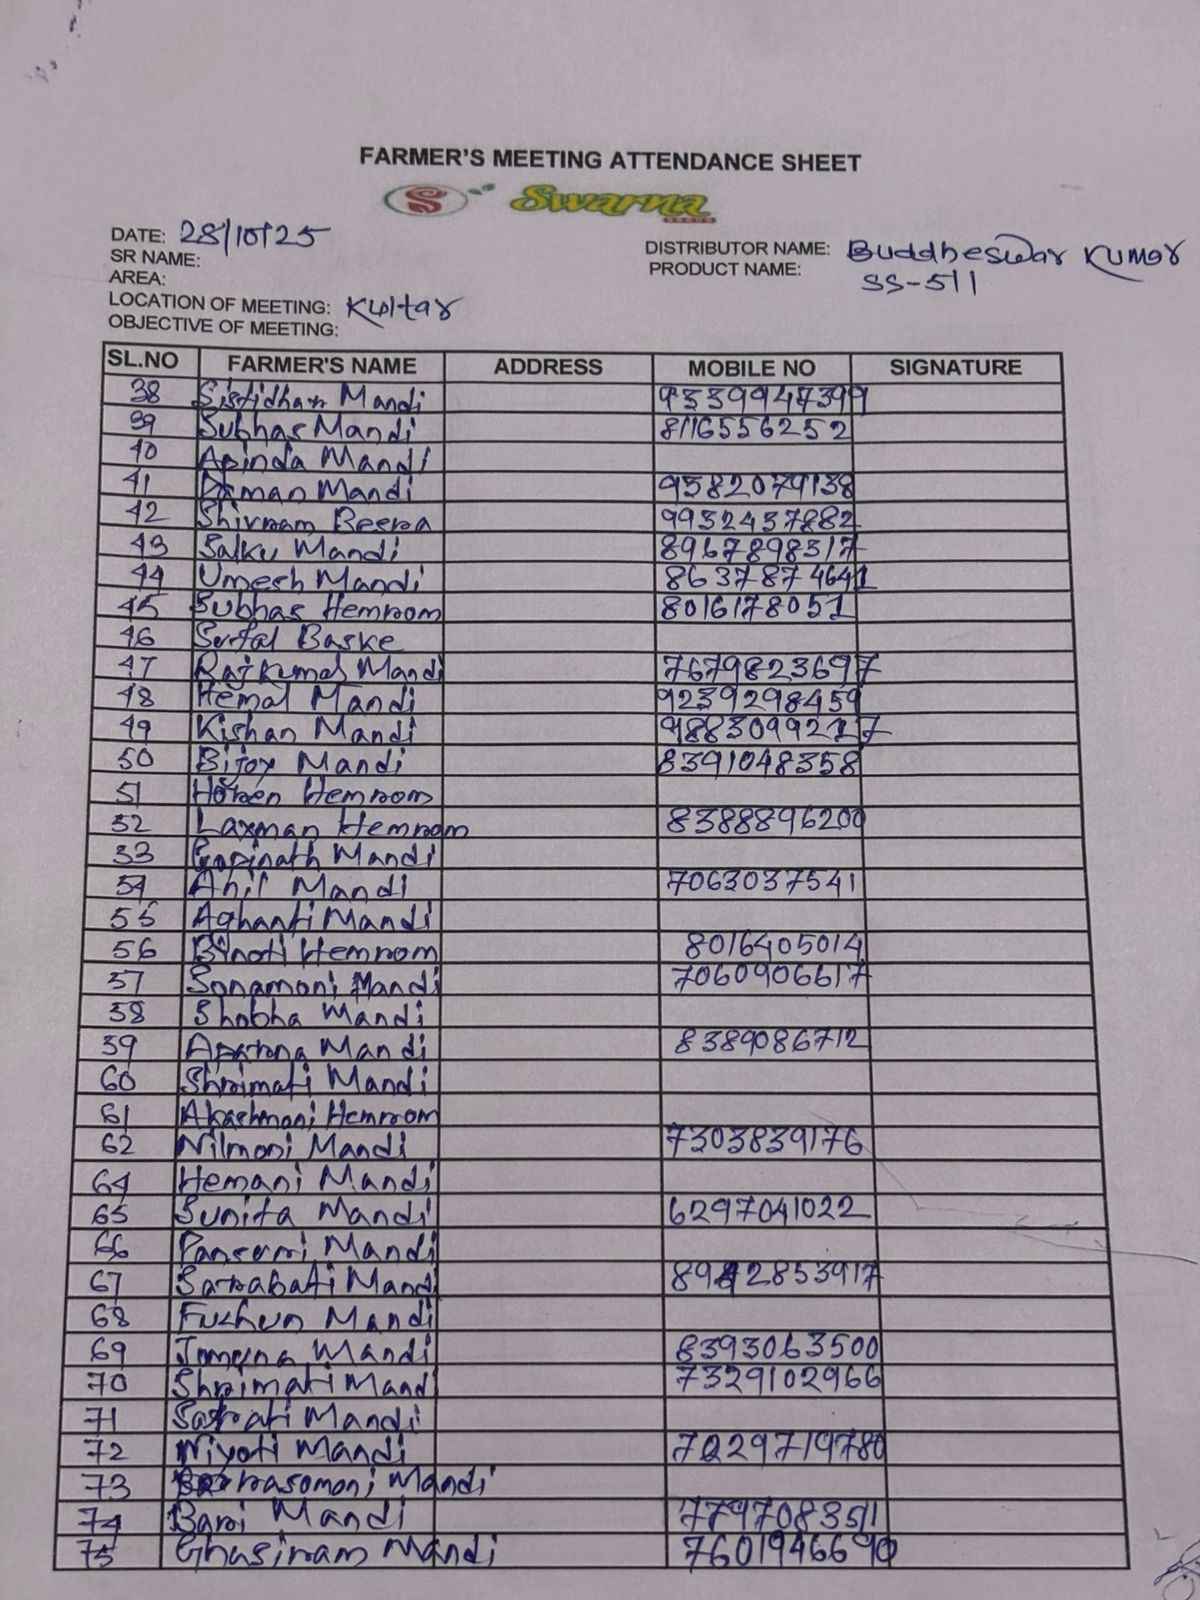 FARMER'S MEETING ATTENDANCE SHEET
S Swarna
GROUP
DATE: 28/10/25
SR NAME:
AREA:
LOCATION OF MEETING: Kultar
OBJECTIVE OF MEETING:
DISTRIBUTOR NAME: Buddheswar Kumar
PRODUCT NAME: SS-511
SL.NO FARMER'S NAME ADDRESS MOBILE NO SIGNATURE
38 Sistidhar Mandi 9339947399
39 Subhas Mandi 8116556252
40 Apinda Mandi
41 Mandi 9382079138
42 Shivram Beera 9932437882
43 Salku Mandi 8967898317
44 Umesh Mandi 8637874641
45 Subhas Hemrom 8016178051
46 Baske
47 Rajkumar Mandi 7679823697
48 Hemal Mandi 9239298459
49 Kishan Mandi 9883099217
50 Bijoy Mandi 8391048358
51 Horen Hemrom
52 Laxman Hemrom 8388896200
53 Gopinath Mandi
54 Anil Mandi 7063037541
55 Aghanti Mandi
56 Binoti Hemrom 8016405014
57 Sonamoni Mandi 7060906617
58 Shobha Mandi
59 Aparna Mandi 8389086712
60 Shrimati Mandi
61 Akashmoni Hemrom
62 Nilmoni Mandi 7303839176
64 Hemani Mandi
65 Sunita Mandi 6297041022
66 Panseri Mandi
67 Sarabati Mandi 8942853917
68 Fuchun Mandi
69 Jomuna Mandi 8393063500
70 Shrimati Mandi 7329102966
71 Mandi
72 Niyoti Mandi 7029719780
73 Mandi
74 Bari Mandi 7797083591
75 Ghasiram Mandi 7601946690